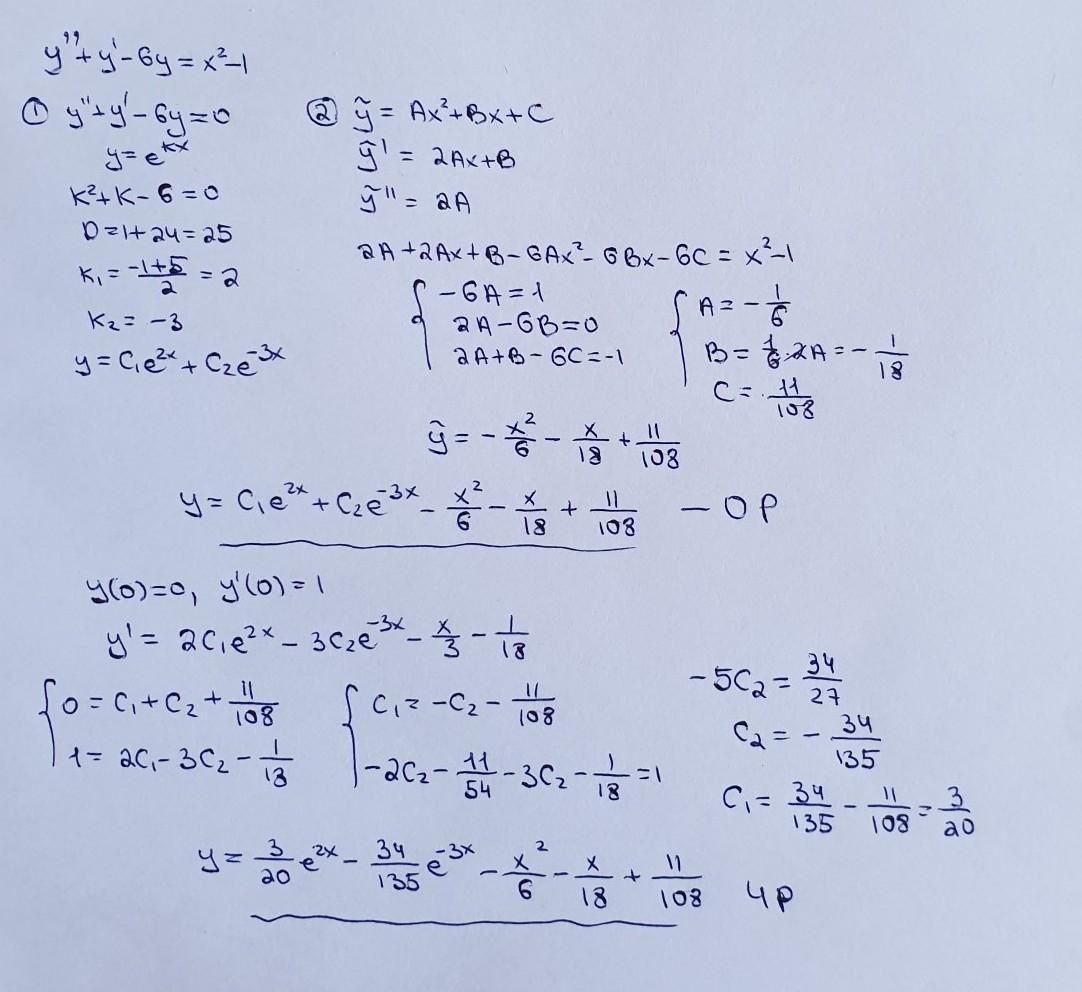 y''+y'-6y=x²-1
① y''+y'-6y=0
y=e^{kx}
k²+k-6=0
D=1+24=25
k₁=\frac{-1+5}{2}=2
k₂=-3
y=C₁e^{2x}+C₂e^{-3x}
② ỹ=Ax²+Bx+C
ỹ'=2Ax+B
ỹ''=2A
2A+2Ax+B-6Ax²-6Bx-6C=x²-1
{ -6A=1
2A-6B=0
2A+B-6C=-1
{ A=-\frac{1}{6}
B=\frac{1}{6}·2A=-\frac{1}{18}
C=\frac{11}{108}
ỹ=-\frac{x²}{6}-\frac{x}{18}+\frac{11}{108}
y=C₁e^{2x}+C₂e^{-3x}-\frac{x²}{6}-\frac{x}{18}+\frac{11}{108} - ОР
y(0)=0, y'(0)=1
y'=2C₁e^{2x}-3C₂e^{-3x}-\frac{x}{3}-\frac{1}{18}
{ 0=C₁+C₂+\frac{11}{108}
1=2C₁-3C₂-\frac{1}{18}
{ C₁=-C₂-\frac{11}{108}
-2C₂-\frac{11}{54}-3C₂-\frac{1}{18}=1
-5C₂=\frac{34}{27}
C₂=-\frac{34}{135}
C₁=\frac{34}{135}-\frac{11}{108}=\frac{3}{20}
y=\frac{3}{20}e^{2x}-\frac{34}{135}e^{-3x}-\frac{x²}{6}-\frac{x}{18}+\frac{11}{108} ЧР